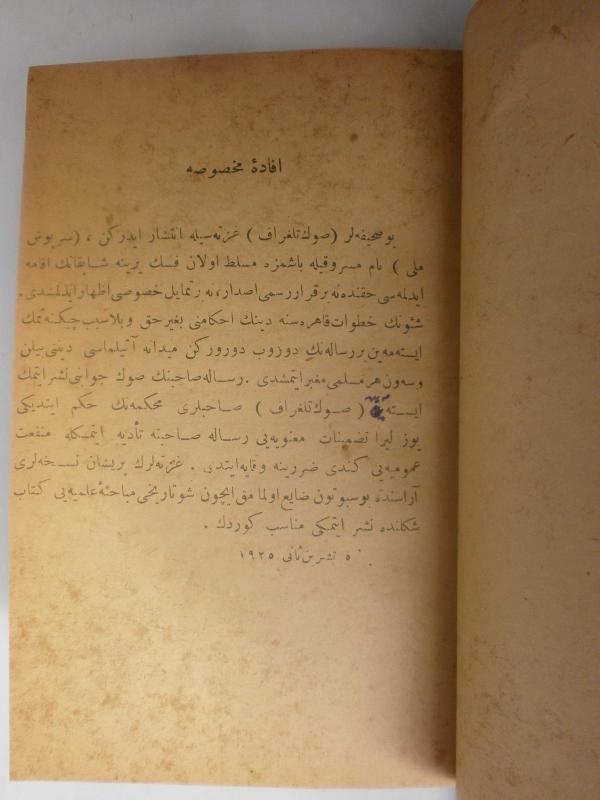 افادۀ مخصوصه
بو صحیفه‌لر ( صوك تلغراف ) غزته‌سیله انتشار ایدركن ، ( سرپوش
ملی ) نام مسروقیله باشمزه مسلط اولان فسك یرینه شاپقه‌نك اقامه
ایدلمه‌سی حقنده نه بر قرار رسمی اصدار ، نه ر تمایل خصوصی اظهار ایدلمشدی .
شئونك خطوات قاهره‌سنه دینك احكامنی بغیر حق و بلاسبب چیكنه‌تمك
ایسته‌مه‌ین بر رساله‌نك دوزوب دورورکن میدانه آتیلماسی دینی بیلن
وسه‌ون هر مسلمی مغبر ایتمشدی . رساله صاحبنك صوك جوابنی نشر ایتمك
ایسته‌مه‌ین ( صوك تلغراف ) صاحبلری محكمه‌نك حكم ایتدیكی
یوز لیرا تضمینات معنویه‌یی رساله صاحبنه تأدیه ایتمكله منفعت
عمومیه‌یی كندی ضررینه وقایه ایتدی . غزته‌لرك پریشان نسخه‌لری
آراسنده بوسبوتون ضایع اولمامق ایچون شو تاریخی مباحثۀ علمیه‌یی كتاب
شكلنده نشر ایتمكی مناسب كوردك .
٥ تشرین ثانی ١٩٢٥